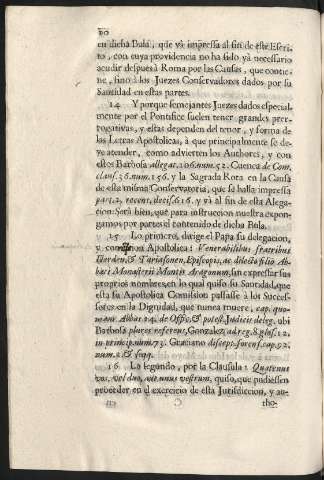 20
en dicha Bula, que và impressa al fin de este Escri-
to, con cuya providencia no ha sido yà necessario
acudir despues à Roma por las Causas, que contie-
ne, sino à los Juezes Conservadores dados por su
Santidad en estas partes.
14 Y porque semejantes Juezes dados especial-
mente por el Pontifice suelen tener grandes prer-
rogativas, y estas dependen del tenor, y forma de
las Letras Apostolicas, à que principalmente se de-
ve atender, como advierten los Authores, y con
estos Barbosa allegat. 106. num. 52. Cuenca de Com.
claus. 36. num. 156. y la Sagrada Rota en la Causa
de esta misma Conservatoria, que se halla impressa
part. 2. recent. decis. 616. y và al fin de esta Alega-
cion: Serà bien, que para instruccion nuestra expon-
gamos por partes el contenido de dicha Bula.
15 Lo primero, dirige el Papa su delegacion,
y comission Apostolica: Venerabilibus fratribus
Ilerden. & Tirasonen. Episcopis, ac dilecto filio Ab-
bati Monasterij Montis Aragonum, sin expressar sus
proprios nombres, en lo qual quiso su Santidad, que
esta su Apostolica Comission passasse à los Succes-
sores en la Dignidad, que nunca muere, cap. quo-
niam Abbas 14. de Offic. & potest. Judicis deleg. ubi
Barbosa plures referens, Gonzalez ad reg. 8. glos. 12.
in princip. num. 73. Graciano discept. forens. cap. 92.
num. 2. & seqq.
16 Lo segundo, por la Clausula: Quatenus
vos, vel duo, vel unus vestrum, quiso, que pudiessen
proceder en el exercicio de esta Jurisdiccion, y au-
C
tho-